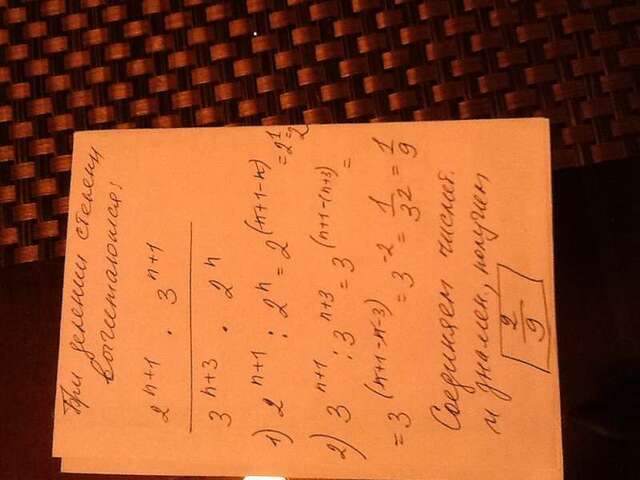 При делении степени
вычитаются:
2^{n+1} · 3^{n+1}
3^{n+3} · 2^n
1) 2^{n+1} : 2^n = 2^{(n+1-n)} = 2^1 = 2
2) 3^{n+1} : 3^{n+3} = 3^{(n+1-(n+3)} =
= 3^{(n+1-n-3)} = 3^{-2} = 1/3^2 = 1/9
Соединяем числит.
и знамен, получим
2/9